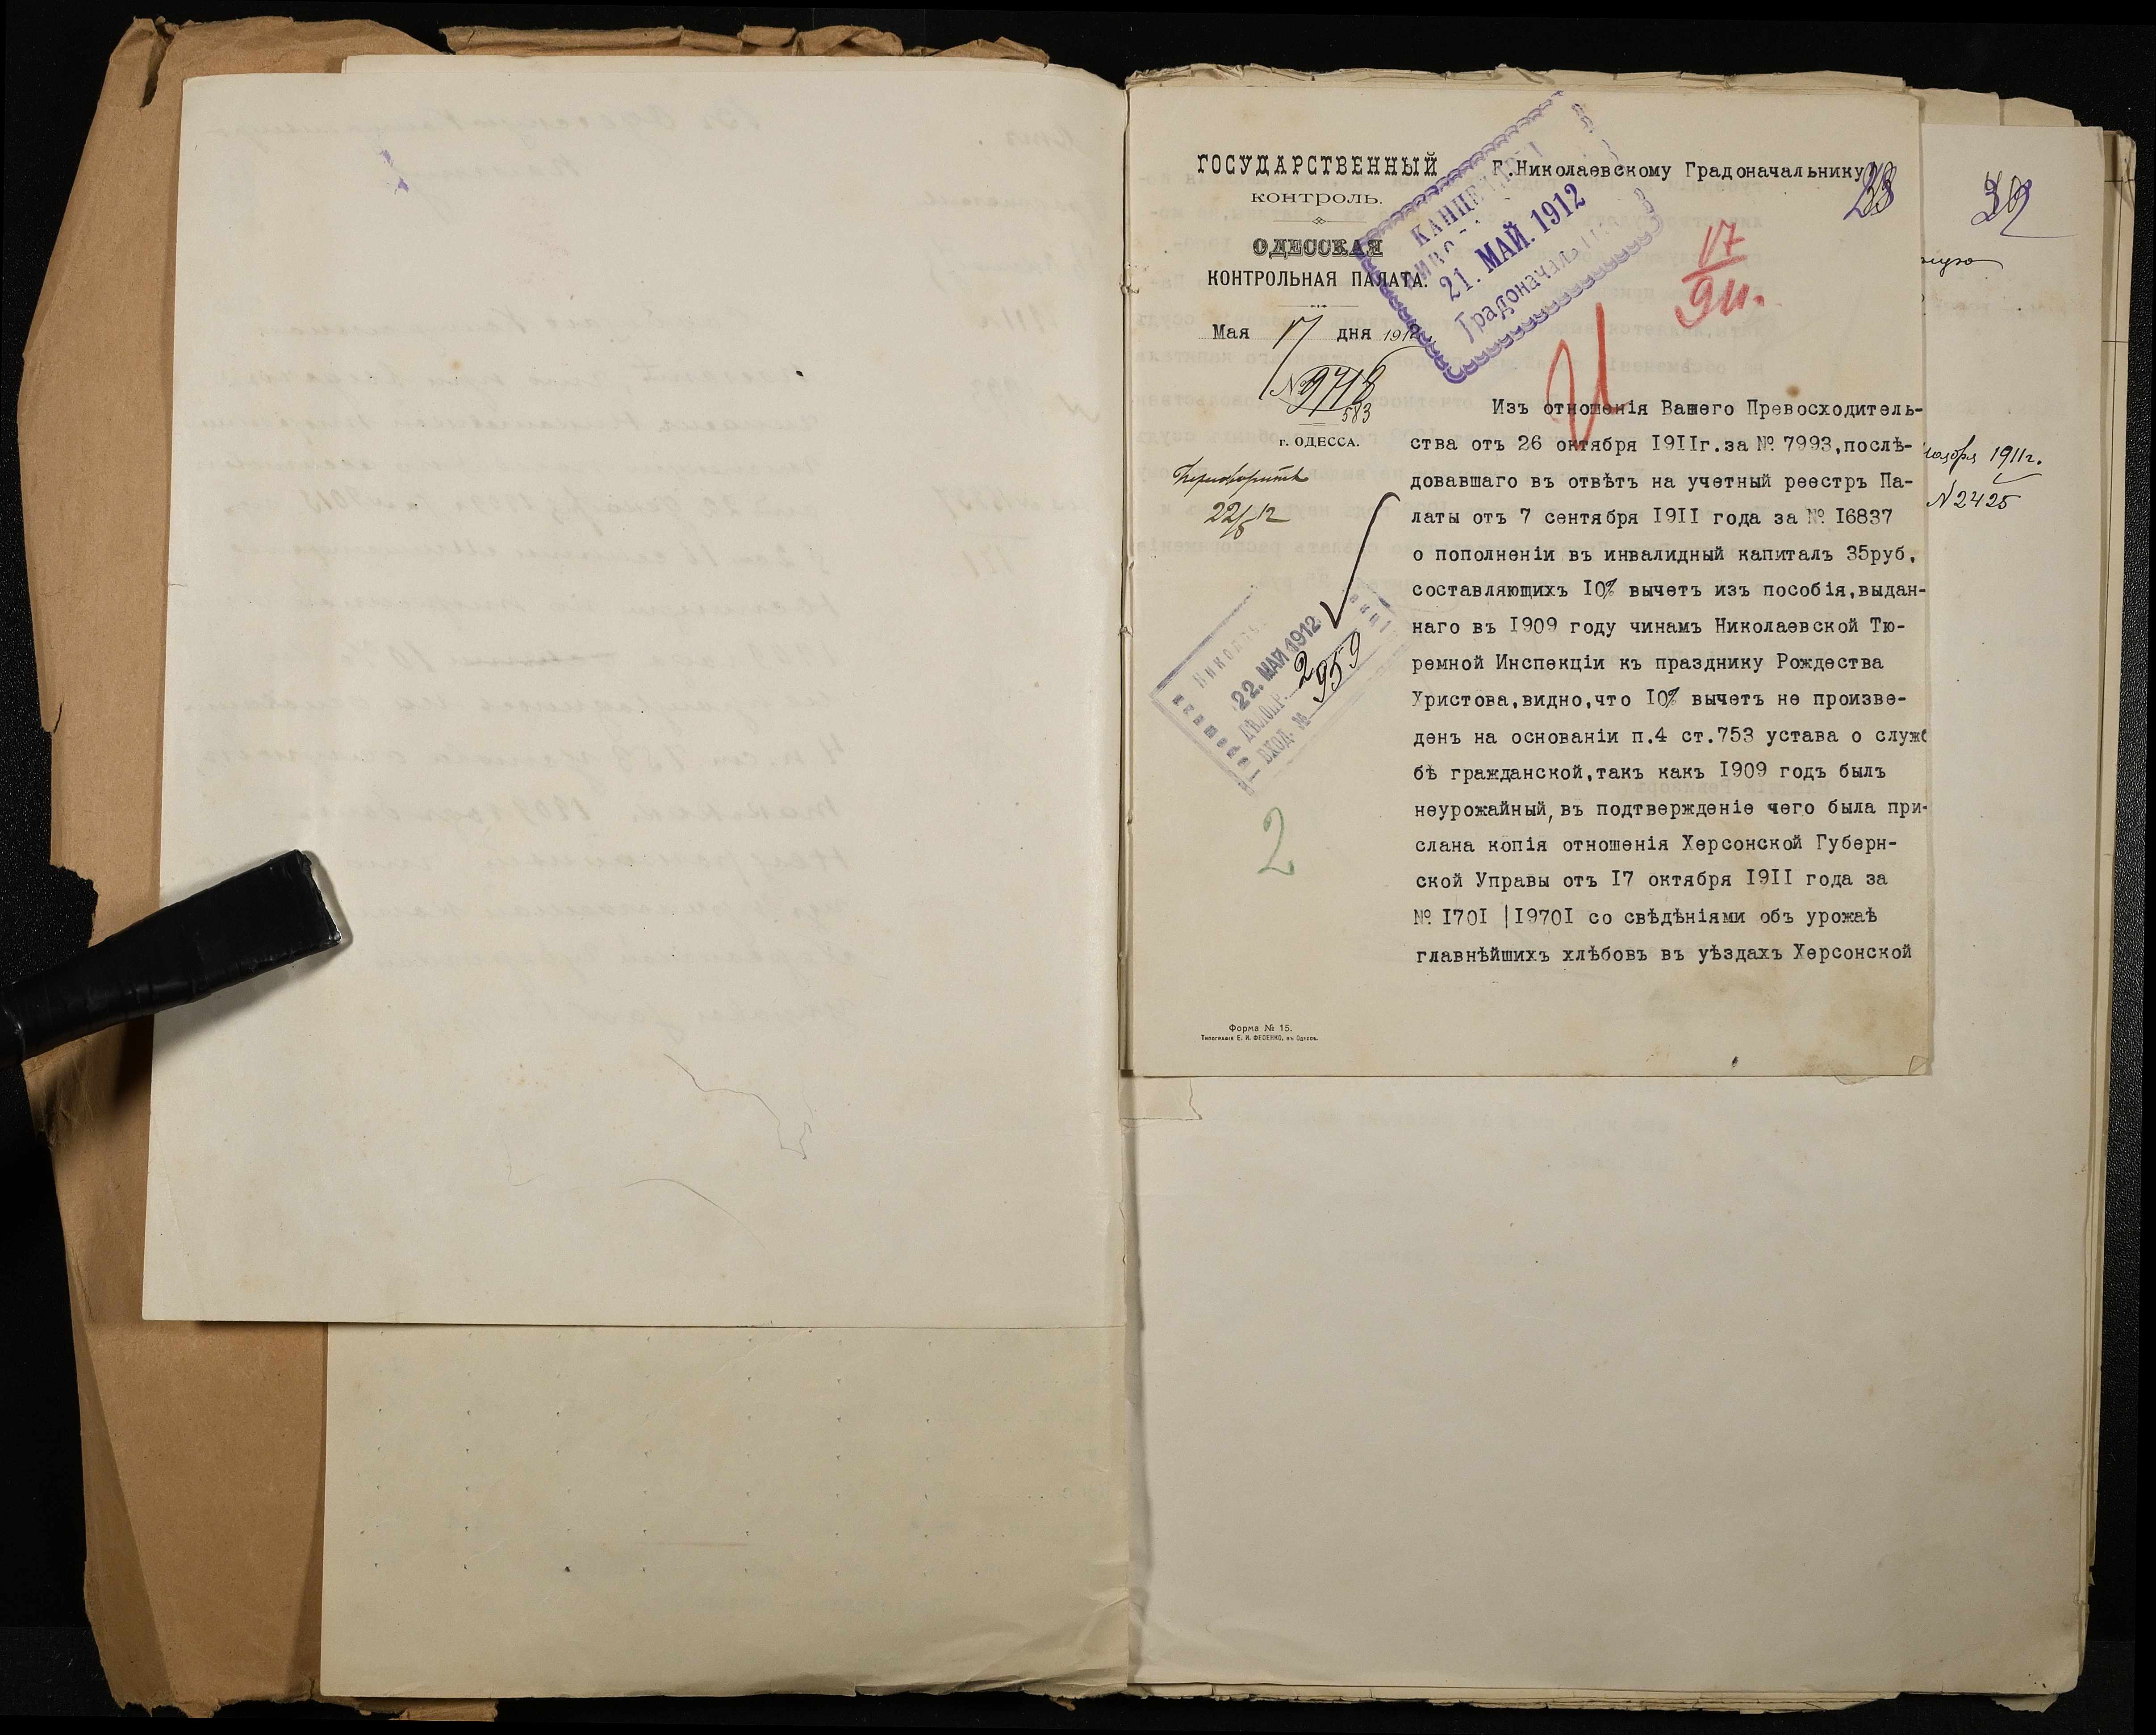 ГОСУДАРСТВЕННЫЙ
КОНТРОЛЬ.
ОДЕССКАЯ
КОНТРОЛЬНАЯ ПАЛАТА.
Мая 17 дня 1912
№ 9718
583
г. ОДЕССА.
22/5 12
КАНЦЕ
21. МАЙ. 1912
Градоначаль
22. МАЙ 1912
ВХОД. № 2959
2
Г.Николаевскому Градоначальнику
33
17
911.
Изъ отношенія Вашего Превосходитель-
ства отъ 26 октября 1911г.за № 7993,послѣ-
довавшаго въ отвѣтъ на учетный реестръ Па-
латы отъ 7 сентября 1911 года за № 16837
о пополненіи въ инвалидный капиталъ 35руб.
составляющихъ 10% вычетъ изъ пособія,выдан-
наго въ 1909 году чинамъ Николаевской Тю-
ремной Инспекціи къ празднику Рождества
Христова,видно,что 10% вычетъ не произве-
денъ на основаніи п.4 ст.753 устава о служ
бѣ гражданской,такъ какъ 1909 годъ былъ
неурожайный,въ подтвержденіе чего была при-
слана копія отношенія Херсонской Губерн-
ской Управы отъ 17 октября 1911 года за
№ 1701 |19701 со свѣдѣніями объ урожаѣ
главнѣйшихъ хлѣбовъ въ уѣздахъ Херсонской
Форма № 15.
Типографія Е. И. ФЕСЕНКО, въ Одессѣ.
ноября 1911г.
N 2425